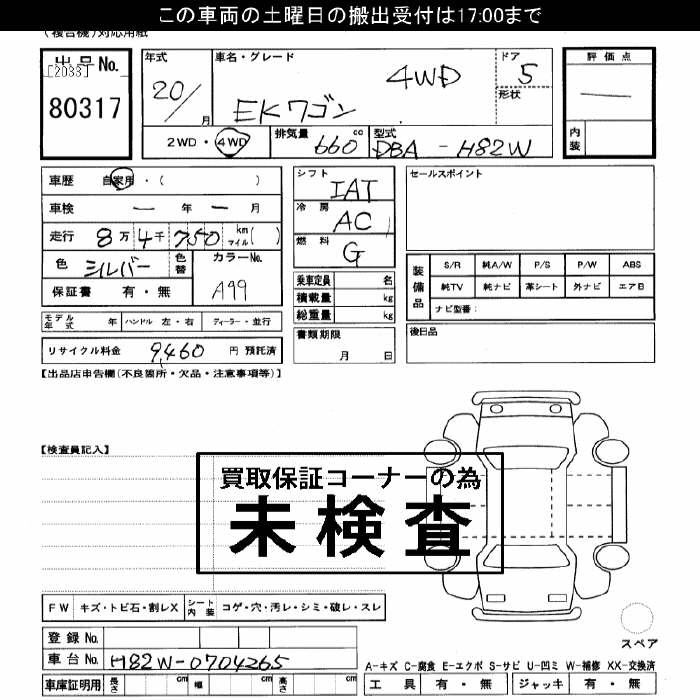 この車両の土曜日の搬出受付は17:00まで
(複合機)対応用紙
出品No. [2033] 80317
年式 20/ 月
車名・グレード EKワゴン 4WD
ドア 5
形状
評価点 —
内装
2WD・4WD
排気量 660 cc
型式 DBA - H82W
車歴 自家用・( )
車検 — 年 — 月
走行 8万 4千 750 km マイル( )
色 シルバー 色替 カラーNo. A99
保証書 有・無
モデル年式 年 ハンドル 左・右 ディーラー・並行
リサイクル料金 9,460 円 預託済
シフト IAT
冷房 AC
燃料 G
乗車定員 名
積載量 kg
総重量 kg
書類期限 月 日
セールスポイント
装備品 S/R 純A/W P/S P/W ABS
純TV 純ナビ 革シート 外ナビ エアB
ナビ型番:
後日品
【出品店申告欄(不良箇所・欠品・注意事項等)】
【検査員記入】
買取保証コーナーの為
未検査
FW キズ・トビ石・割レX シート内装 コゲ・穴・汚レ・シミ・破レ・スレ
登録No.
車台No. H82W-0704265
車庫証明用 長さ cm 幅 cm 高さ cm
スペア
A-キズ C-腐食 E-エクボ S-サビ U-凹ミ W-補修 XX-交換済
工具 有・無 ジャッキ 有・無